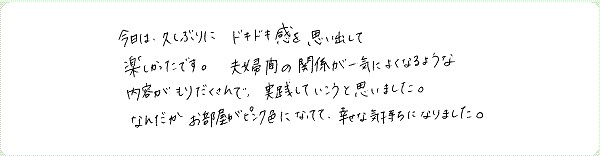 今日は、久しぶりに ドキドキ感を思い出して
楽しかったです。 夫婦間の関係が一気によくなるような
内容がもりだくさんで、実践していこうと思いました。
なんだかお部屋がピンク色になってて、幸せな気持ちになりました。